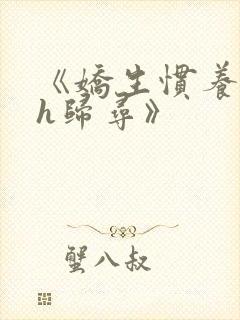 《嬌生慣養
h歸尋》
蟹八叔